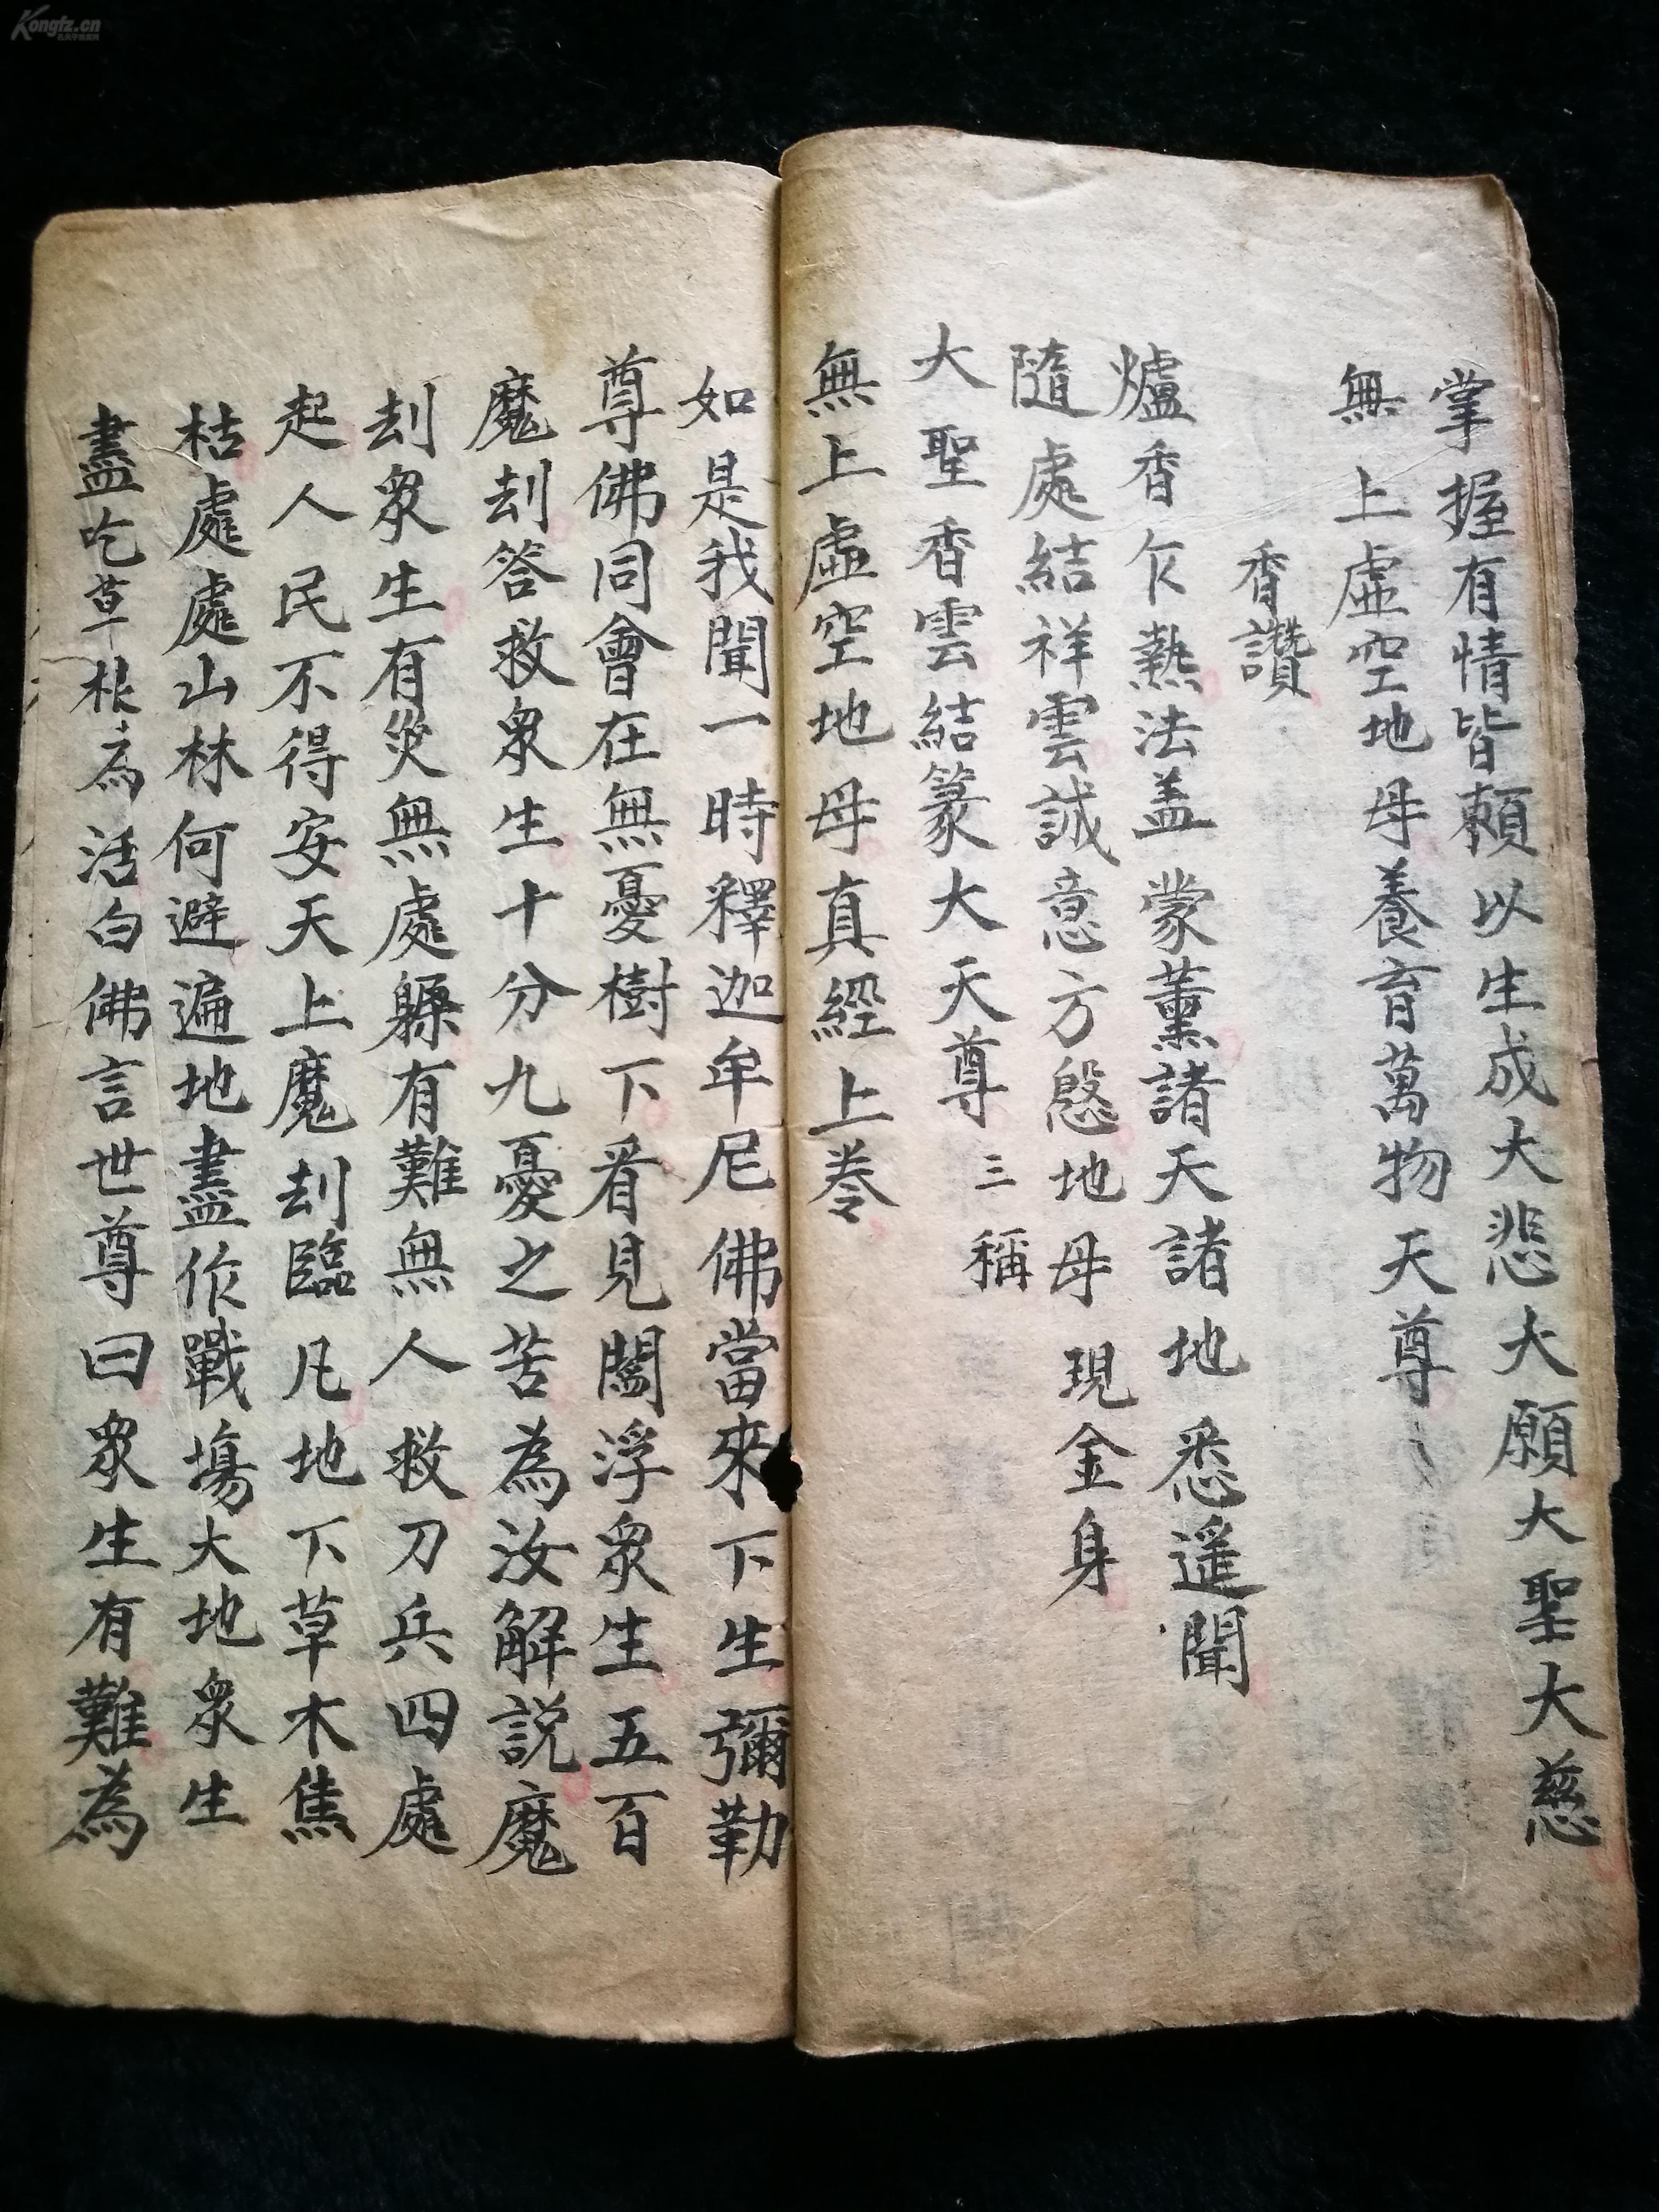 掌握有情皆頼以生成大悲大願大聖大慈
無上虛空地母養育萬物天尊
香讚
爐香乍熱法盖蒙薰諸天諸地悉遥聞
隨處結祥雲誠意方慇地母現金身
大聖香雲結篆大天尊三稱
無上虛空地母真經上卷
如是我聞一時釋迦牟尼佛當來下生彌勒
尊佛同會在無憂樹下看見閻浮眾生五百
魔刦答救眾生十分九憂之苦為汝解説魔
刦眾生有災無處躲有難無人救刀兵四處
起人民不得安天上魔刦臨凡地下草木焦
枯處處山林何避遍地盡作戰塲大地眾生
盡吃草根為活白佛言世尊曰眾生有難為
Kongfz.cn